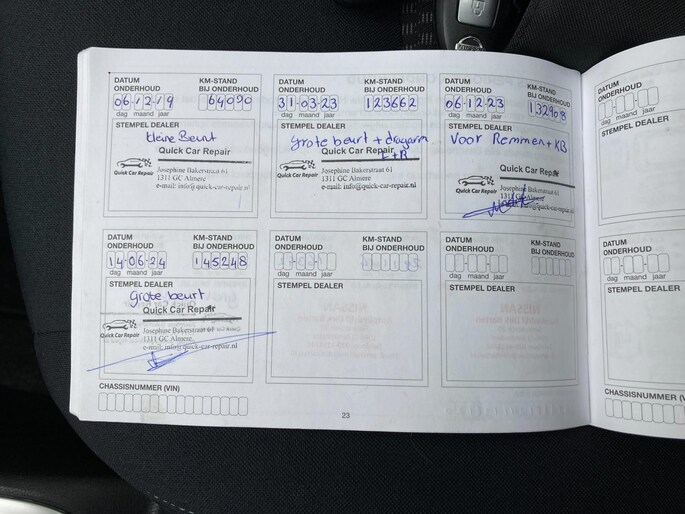 DATUM ONDERHOUD KM-STAND BIJ ONDERHOUD
06-12-19 64090
dag maand jaar
STEMPEL DEALER
kleine Beurt
Quick Car Repair
Josephine Bakerstraat 61
1311 GC Almere
e-mail: info@quick-car-repair.nl
Quick Car Repair
DATUM ONDERHOUD KM-STAND BIJ ONDERHOUD
31-03-23 123662
dag maand jaar
STEMPEL DEALER
grote beurt + draagarm
L+R
Quick Car Repair
Josephine Bakerstraat 61
1311 GC Almere
e-mail: info@quick-car-repair.nl
Quick Car Repair
DATUM ONDERHOUD KM-STAND BIJ ONDERHOUD
06-12-23 132908
dag maand jaar
STEMPEL DEALER
Voor Remmen + KB
Quick Car Repair
Josephine Bakerstraat 61
1311 GC Almere
info@quick-car-repair.nl
Quick Car Repair
DATUM ONDERHOUD
dag maand jaar
STEMPEL DEALER
DATUM ONDERHOUD KM-STAND BIJ ONDERHOUD
14-06-24 145248
dag maand jaar
STEMPEL DEALER
grote beurt
Quick Car Repair
Josephine Bakerstraat 61
1311 GC Almere
e-mail: info@quick-car-repair.nl
Quick Car Repair
DATUM ONDERHOUD KM-STAND BIJ ONDERHOUD
dag maand jaar
STEMPEL DEALER
DATUM ONDERHOUD KM-STAND BIJ ONDERHOUD
dag maand jaar
STEMPEL DEALER
DATUM ONDERHOUD
dag maand jaar
STEMPEL DEALER
CHASSISNUMMER (VIN)
23
CHASSISNUMMER (VI